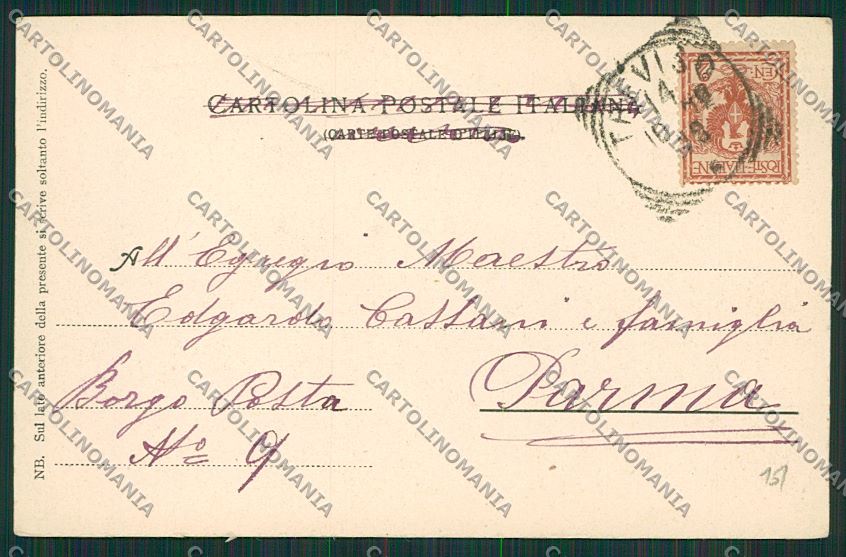 CARTOLINA POSTALE ITALIANA
(CARTE POSTALE D'ITALIE).
TREVISO
POSTE·ITALIANE
All'Egregio Maestro
Edgardo Cassani e famiglia
Borgo Posta
No 9
Parma
NB. Sul lato anteriore della presente si scrive soltanto l'indirizzo.
15/
CARTOLINOMANIA